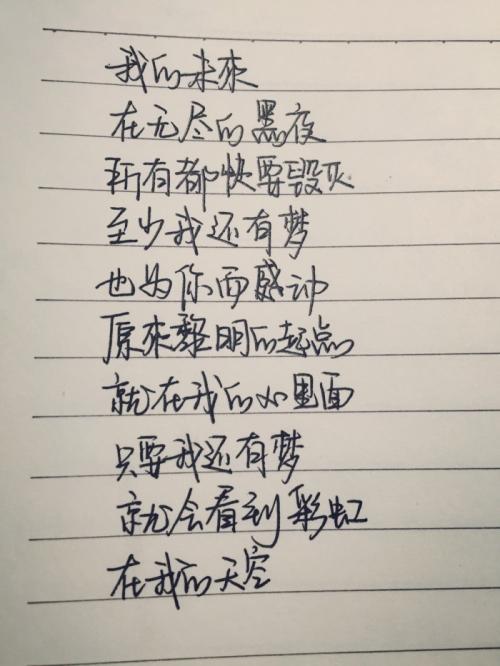 我的未來
在无尽的黑夜
所有都快要毁灭
至少我还有梦
也为你而感动
原來黎明的起点
就在我的心里面
只要我还有梦
就会看到彩虹
在我的天空